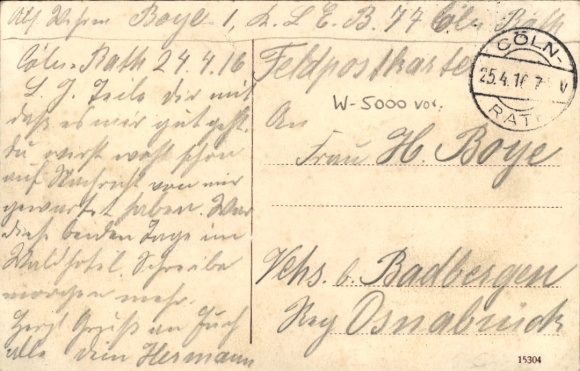 Boye 1, K. L. E. B. 77 Cöln Rath
Cöln-Rath 24.4.16
L. J. Teile dir mit
daß es mir gut geht.
du wirst wohl schon
auf Nachricht von mir
gewartet haben. War
diese beiden Tage im
Waldhotel. Schreibe
morgen mehr.
Herzl Gruß an Euch
alle dein Hermann
Feldpostkarte
CÖLN-
25.4.16 7 V
RATH
W-5000 vor.
An
Frau H. Boye
Vehs b. Badbergen
Reg Osnabrück
15304